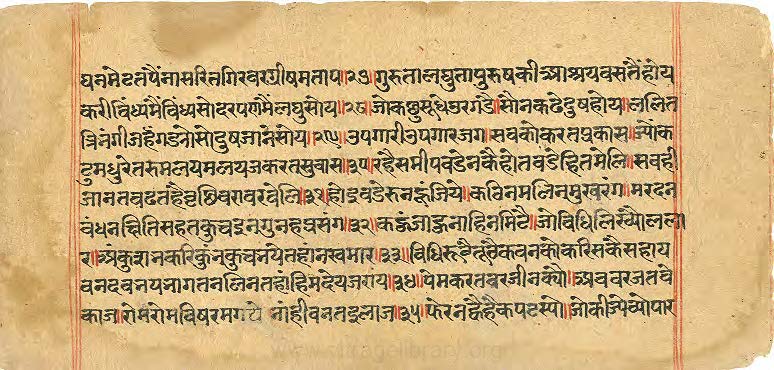 घनमेटनपैंनासरितगिरवरग्रीषमताप॥२७॥गुरुतालघुतापुरुषकीआश्रयवसतैंहोय
करीविंध्यमैविंध्यसोदरपणमैंलघुसोय॥२८॥जोकछुसूधेउरगडै॥सौनकढेदुषहोय॥ललित
त्रिनंगीजहंगडनोसोदुषजानंसोय॥२९॥उपगारीउपगारजग॥सवकोकरतप्रकास॥ज्योंक
टुमधुरेतरुमलयमलयजकरतसुवास॥३०॥रहैसमीपवडेनकैहोतवडेहितमेलि॥सवही
जानतवढतहैवृछिवरावरवेलि॥३१॥होइवडेरुनहूजिये॥कठिनमलिनमुखरंग॥मरदन
वंधनछितिसहतकुचइनगुनहप्रसंग॥३२॥कहूंजाहूनाहिनमिटै॥जोविधिलिख्योलला
र॥अंकुशनकरिकुंनकुचनयेतहांनखमार॥३३॥विधिरूठैतूठैकवनकोकरिसकैसहाय
वनदवनयनागतनलिनतहांहिमदेयजराय॥३४॥पेमकरतवरजीनक्यों॥अववरजतवे
काज॥रोमरोमविषरमगये नाहीवनतइलाज॥३५॥फेरनह्वैहैकपटस्यों॥जोकीजेव्योपार
www.sarasgelibrary.org